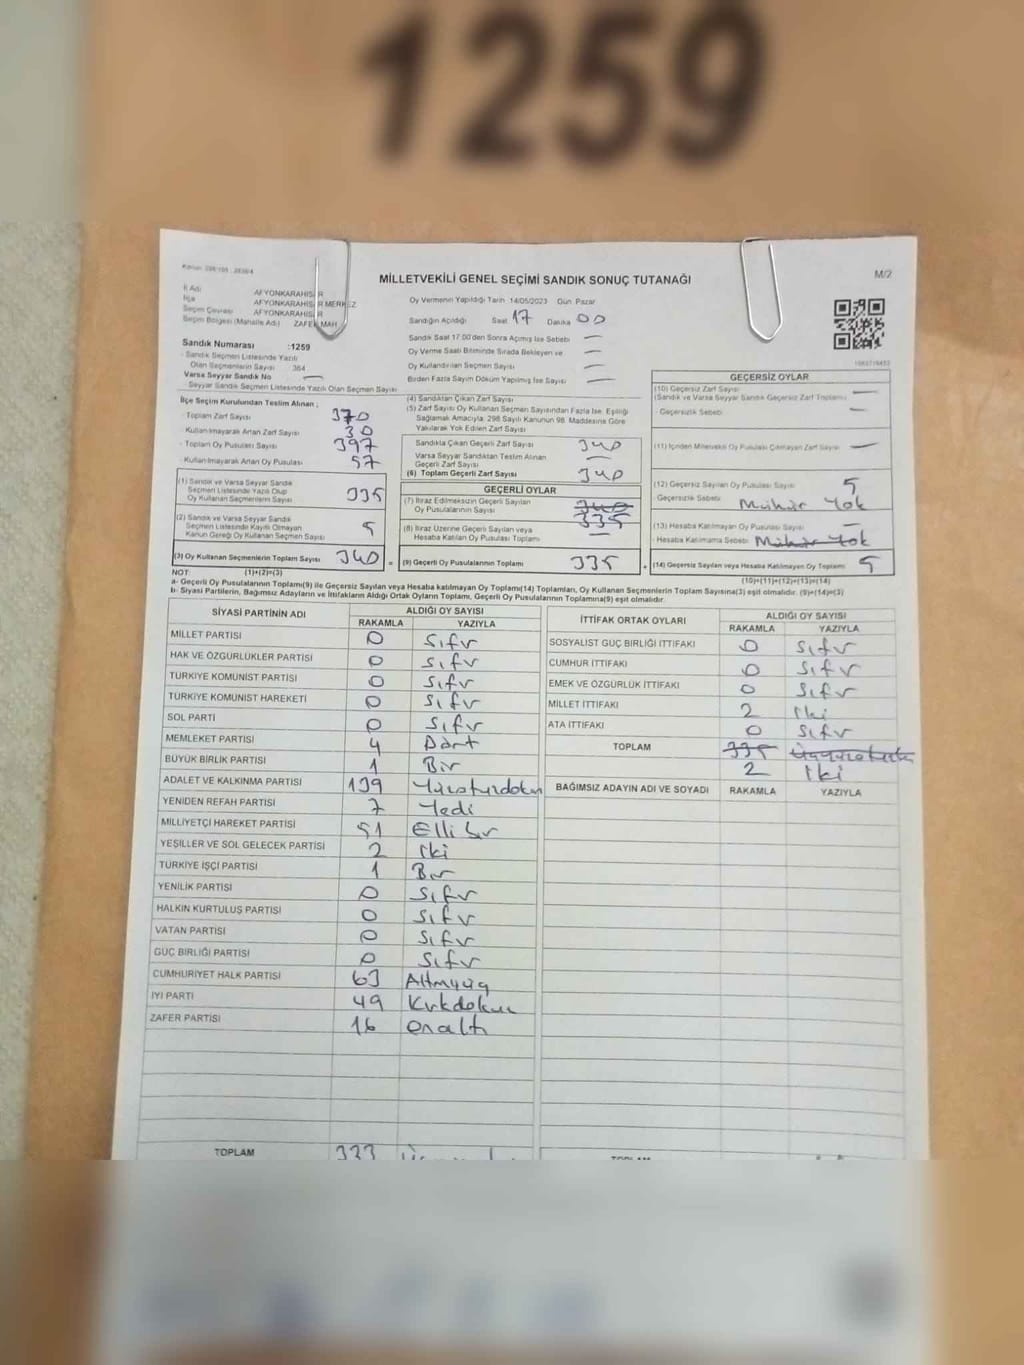 1259
MİLLETVEKİLİ GENEL SEÇİMİ SANDIK SONUÇ TUTANAĞI
M/2
İl Adı AFYONKARAHİSAR
İlçe AFYONKARAHİSAR MERKEZ
Seçim Çevresi AFYONKARAHİSAR
Seçim Bölgesi (Mahalle Adı) ZAFER MAH
Sandık Numarası :1259
- Sandık Seçmen Listesinde Yazılı
Olan Seçmenlerin Sayısı 364
Varsa Seyyar Sandık No —
Seyyar Sandık Seçmen Listesinde Yazılı Olan Seçmen Sayısı
Oy Vermenin Yapıldığı Tarih 14/05/2023 Gün Pazar
Sandığın Açıldığı Saat 17 Dakika 00
Sandık Saat 17.00'den Sonra Açılmış İse Sebebi —
Oy Verme Saati Bitiminde Sırada Bekleyen ve —
Oy Kullandırılan Seçmen Sayısı —
Birden Fazla Sayım Döküm Yapılmış İse Sayısı —
İlçe Seçim Kurulundan Teslim Alınan ;
- Toplam Zarf Sayısı 370
- Kullanılmayarak Artan Zarf Sayısı 30
- Toplam Oy Pusulası Sayısı 397
- Kullanılmayarak Artan Oy Pusulası 57
(1) Sandık ve Varsa Seyyar Sandık
Seçmen Listesinde Yazılı Olup
Oy Kullanan Seçmenlerin Sayısı 335
(2) Sandık ve Varsa Seyyar Sandık
Seçmen Listesinde Kayıtlı Olmayan
Kanun Gereği Oy Kullanan Seçmen Sayısı 5
(3) Oy Kullanan Seçmenlerin Toplam Sayısı 340 =
(4) Sandıktan Çıkan Zarf Sayısı
(5) Zarf Sayısı Oy Kullanan Seçmen Sayısından Fazla İse, Eşitliği
Sağlamak Amacıyla; 298 Sayılı Kanunun 98. Maddesine Göre
Yakılarak Yok Edilen Zarf Sayısı
Sandıkta Çıkan Geçerli Zarf Sayısı 340
Varsa Seyyar Sandıktan Teslim Alınan
Geçerli Zarf Sayısı —
(6) Toplam Geçerli Zarf Sayısı 340
GEÇERLİ OYLAR
(7) İtiraz Edilmeksizin Geçerli Sayılan 340
Oy Pusulalarının Sayısı 335
(8) İtiraz Üzerine Geçerli Sayılan veya
Hesaba Katılan Oy Pusulası Toplamı —
(9) Geçerli Oy Pusulalarının Toplamı 335 +
GEÇERSİZ OYLAR
(10) Geçersiz Zarf Sayısı
(Sandık ve Varsa Seyyar Sandık Geçersiz Zarf Toplamı) —
Geçersizlik Sebebi —
(11) İçinden Milletvekili Oy Pusulası Çıkmayan Zarf Sayısı —
(12) Geçersiz Sayılan Oy Pusulası Sayısı 5
Geçersizlik Sebebi Mühür Yok
(13) Hesaba Katılmayan Oy Pusulası Sayısı —
- Hesaba Katılmama Sebebi Mühür Yok
(14) Geçersiz Sayılan veya Hesaba Katılmayan Oy Toplamı 5
NOT: (1)+(2)=(3) (10)+(11)+(12)+(13)=(14)
a- Geçerli Oy Pusulalarının Toplamı(9) ile Geçersiz Sayılan veya Hesaba katılmayan Oy Toplamı(14) Toplamları, Oy Kullanan Seçmenlerin Toplam Sayısına(3) eşit olmalıdır. (9)+(14)=(3)
b- Siyasi Partilerin, Bağımsız Adayların ve İttifakların Aldığı Ortak Oyların Toplamı, Geçerli Oy Pusulalarının Toplamına(9) eşit olmalıdır.
SİYASİ PARTİNİN ADI ALDIĞI OY SAYISI
RAKAMLA YAZIYLA
MİLLET PARTİSİ 0 Sıfır
HAK VE ÖZGÜRLÜKLER PARTİSİ 0 Sıfır
TÜRKİYE KOMÜNİST PARTİSİ 0 Sıfır
TÜRKİYE KOMÜNİST HAREKETİ 0 Sıfır
SOL PARTİ 0 Sıfır
MEMLEKET PARTİSİ 4 Dört
BÜYÜK BİRLİK PARTİSİ 1 Bir
ADALET VE KALKINMA PARTİSİ 139 Yüzotuzdokuz
YENİDEN REFAH PARTİSİ 7 Yedi
MİLLİYETÇİ HAREKET PARTİSİ 51 Ellibir
YEŞİLLER VE SOL GELECEK PARTİSİ 2 İki
TÜRKİYE İŞÇİ PARTİSİ 1 Bir
YENİLİK PARTİSİ 0 Sıfır
HALKIN KURTULUŞ PARTİSİ 0 Sıfır
VATAN PARTİSİ 0 Sıfır
GÜÇ BİRLİĞİ PARTİSİ 0 Sıfır
CUMHURİYET HALK PARTİSİ 63 Altmışüç
İYİ PARTİ 49 Kırkdokuz
ZAFER PARTİSİ 16 onaltı
TOPLAM 333
İTTİFAK ORTAK OYLARI ALDIĞI OY SAYISI
RAKAMLA YAZIYLA
SOSYALİST GÜÇ BİRLİĞİ İTTİFAKI 0 Sıfır
CUMHUR İTTİFAKI 0 Sıfır
EMEK VE ÖZGÜRLÜK İTTİFAKI 0 Sıfır
MİLLET İTTİFAKI 2 İki
ATA İTTİFAKI 0 Sıfır
TOPLAM 335
2 İki
BAĞIMSIZ ADAYIN ADI VE SOYADI RAKAMLA YAZIYLA
TOPLAM